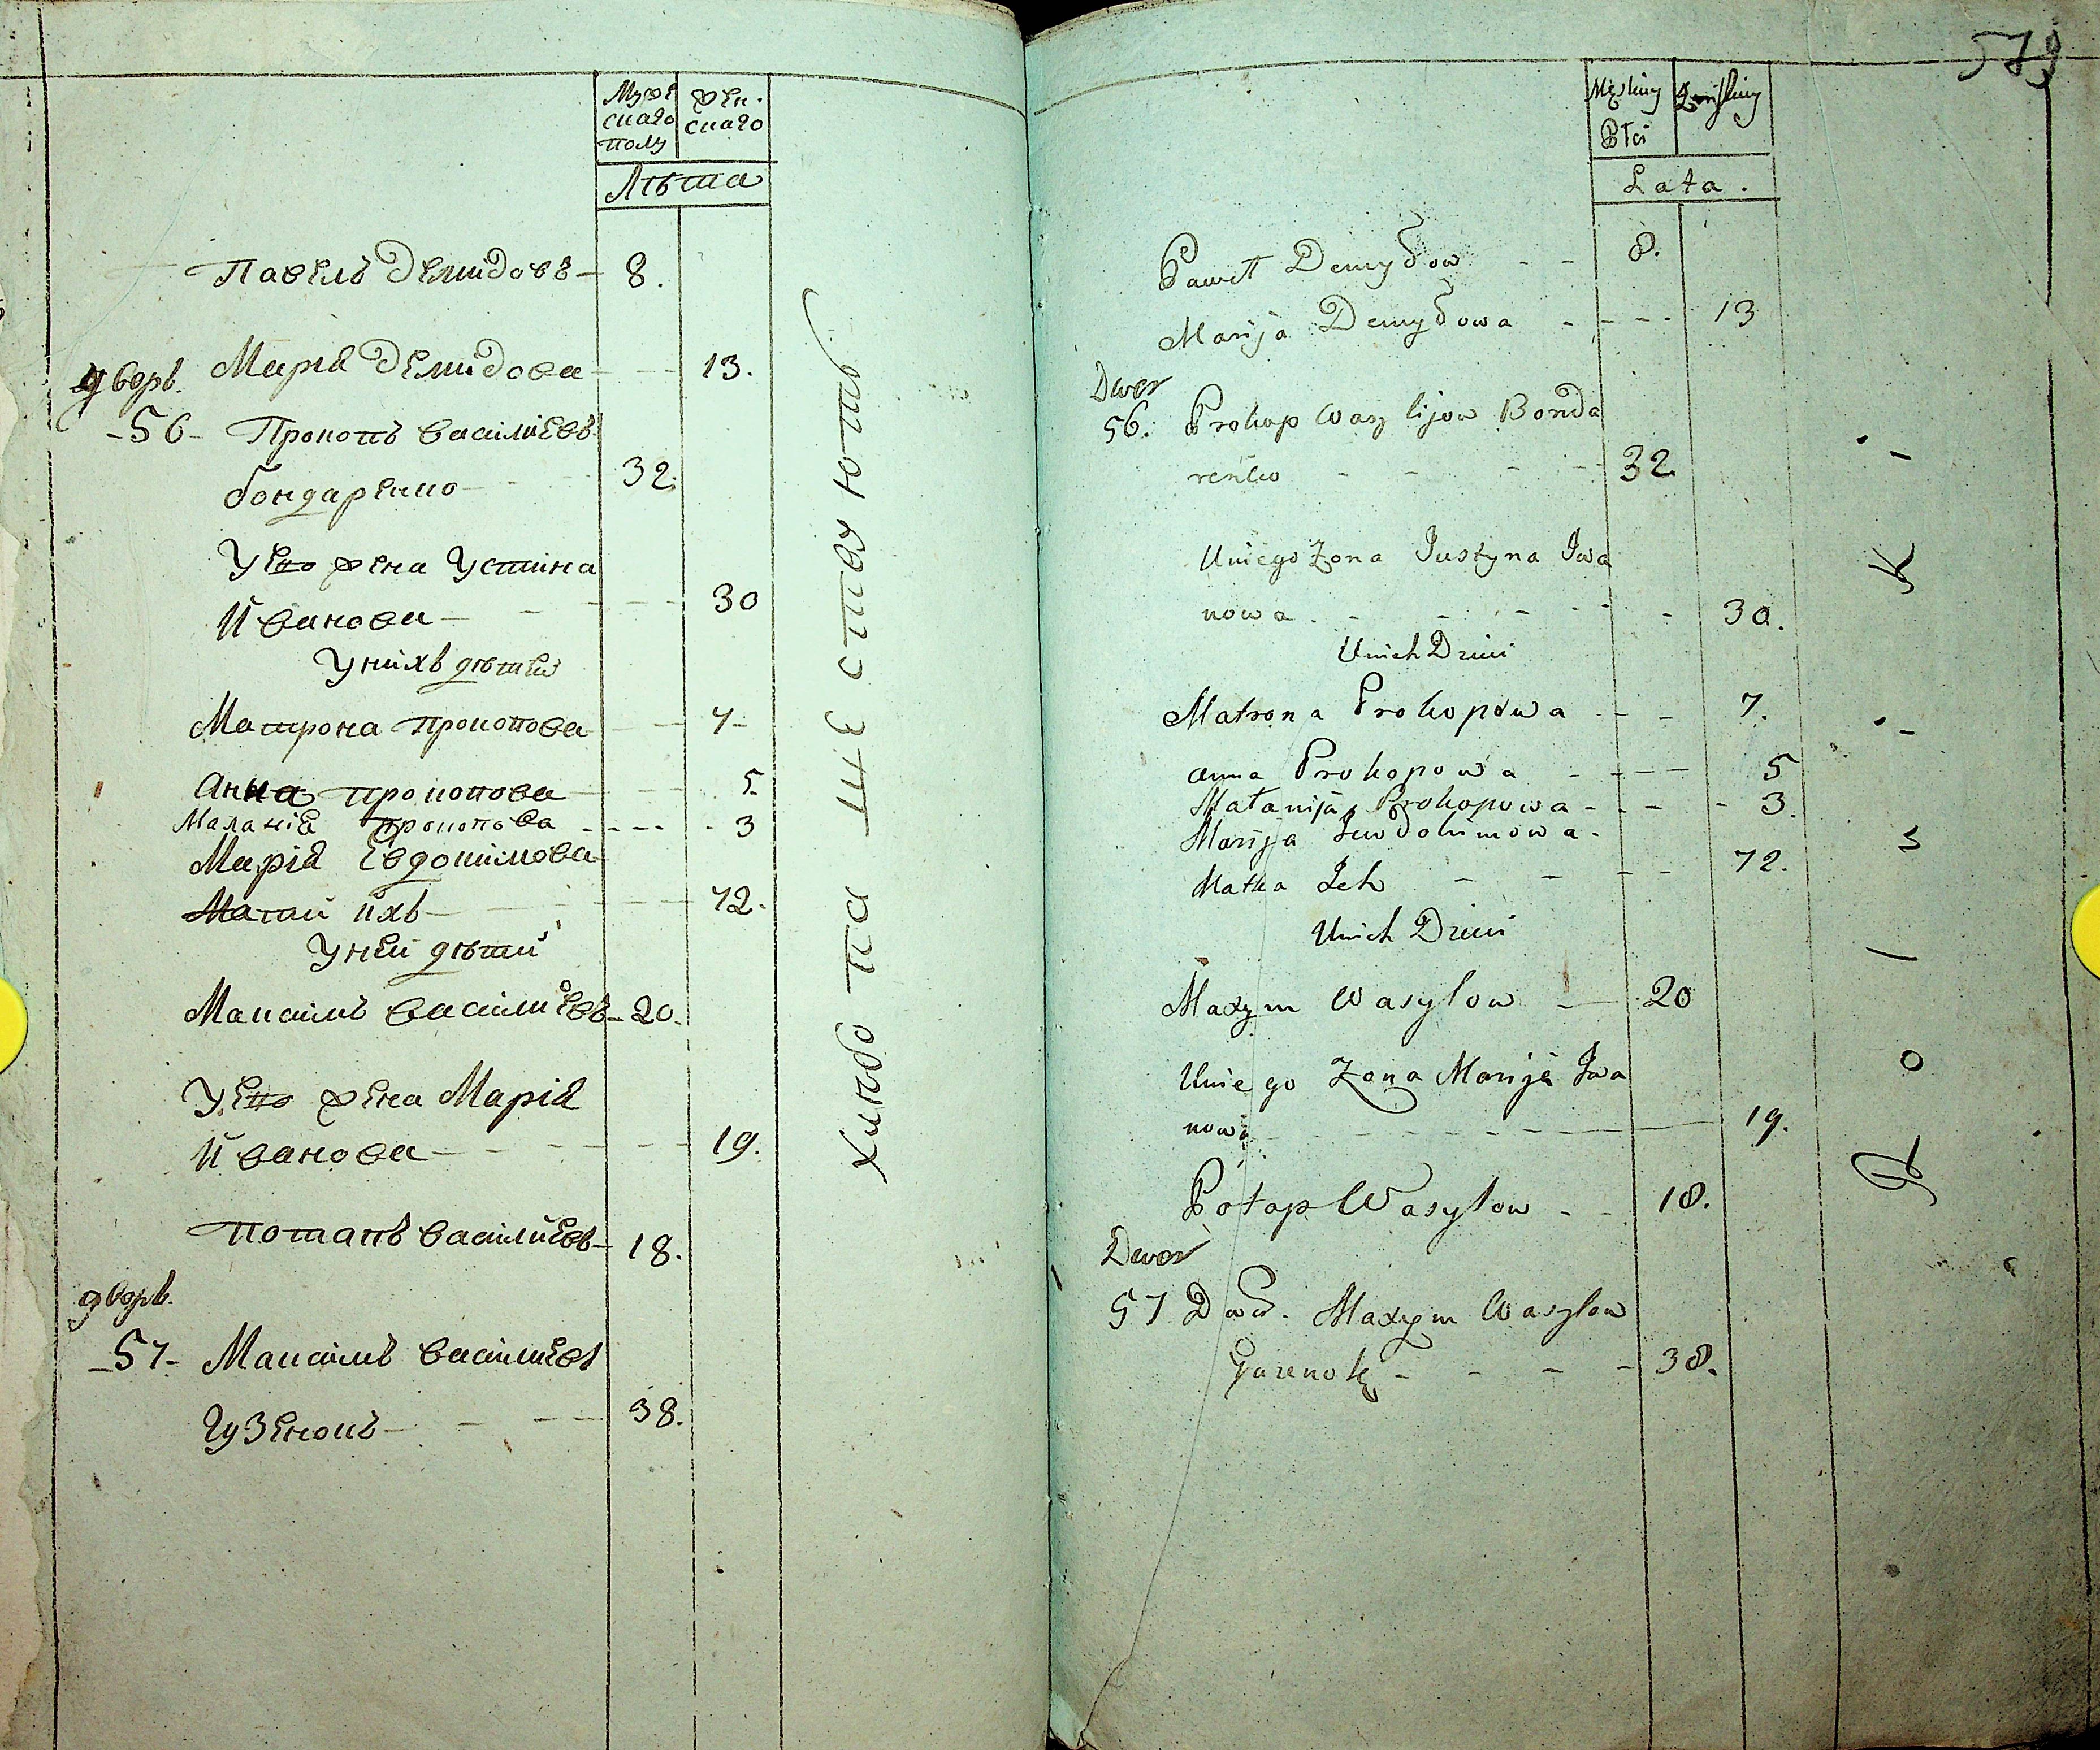 579
Муже
скаго
полу
Жен.
скаго
Лѣта
Павелъ Демидовъ - 8.
Марія Демидова - 13.
дворъ.
-56- Прокопъ Василіевъ
бондаренко - 32.
У Его жена Устина
Иванова - 30
У нихъ дѣтей
Матрона прокопова - 7-
Анна прокопова - 5.
Маланія прокопова - - - - 3
Марія Евдокимова
Матка ихъ - 72.
У ней дѣти
Максимъ Василіевъ - 20.
У Его жена Марія
Иванова - 19.
Потапъ Василіевъ - 18.
дворъ.
-57- Максимъ Василіевъ
Гузенокъ - 38.
Męskiey
Płci
Żeńskiey
Lata.
Paweł Demydow - - 8.
Marija Demydowa - - - - 13
Dwor
56. Prokop Wasylijow Bonda
renko - - - - 32
U niego Żona Justyna Iwa
nowa - - - - - 30.
U nich Dzieci
Matrona Prokopowa - - 7.
Anna Prokopowa - - - - 5
Małanija Prokopowa - - - - 3.
Marija Jewdokimowa -
Matka Ich - - - - 72.
U nich Dzieci
Maxym Wasylow - 20
U niego Żona Marija Iwa
nowa - - - - - 19.
Potap Wasylow - - 18.
Dwor
57 Dwor. Maxym Wasylow
Guzenok - - - - 38.